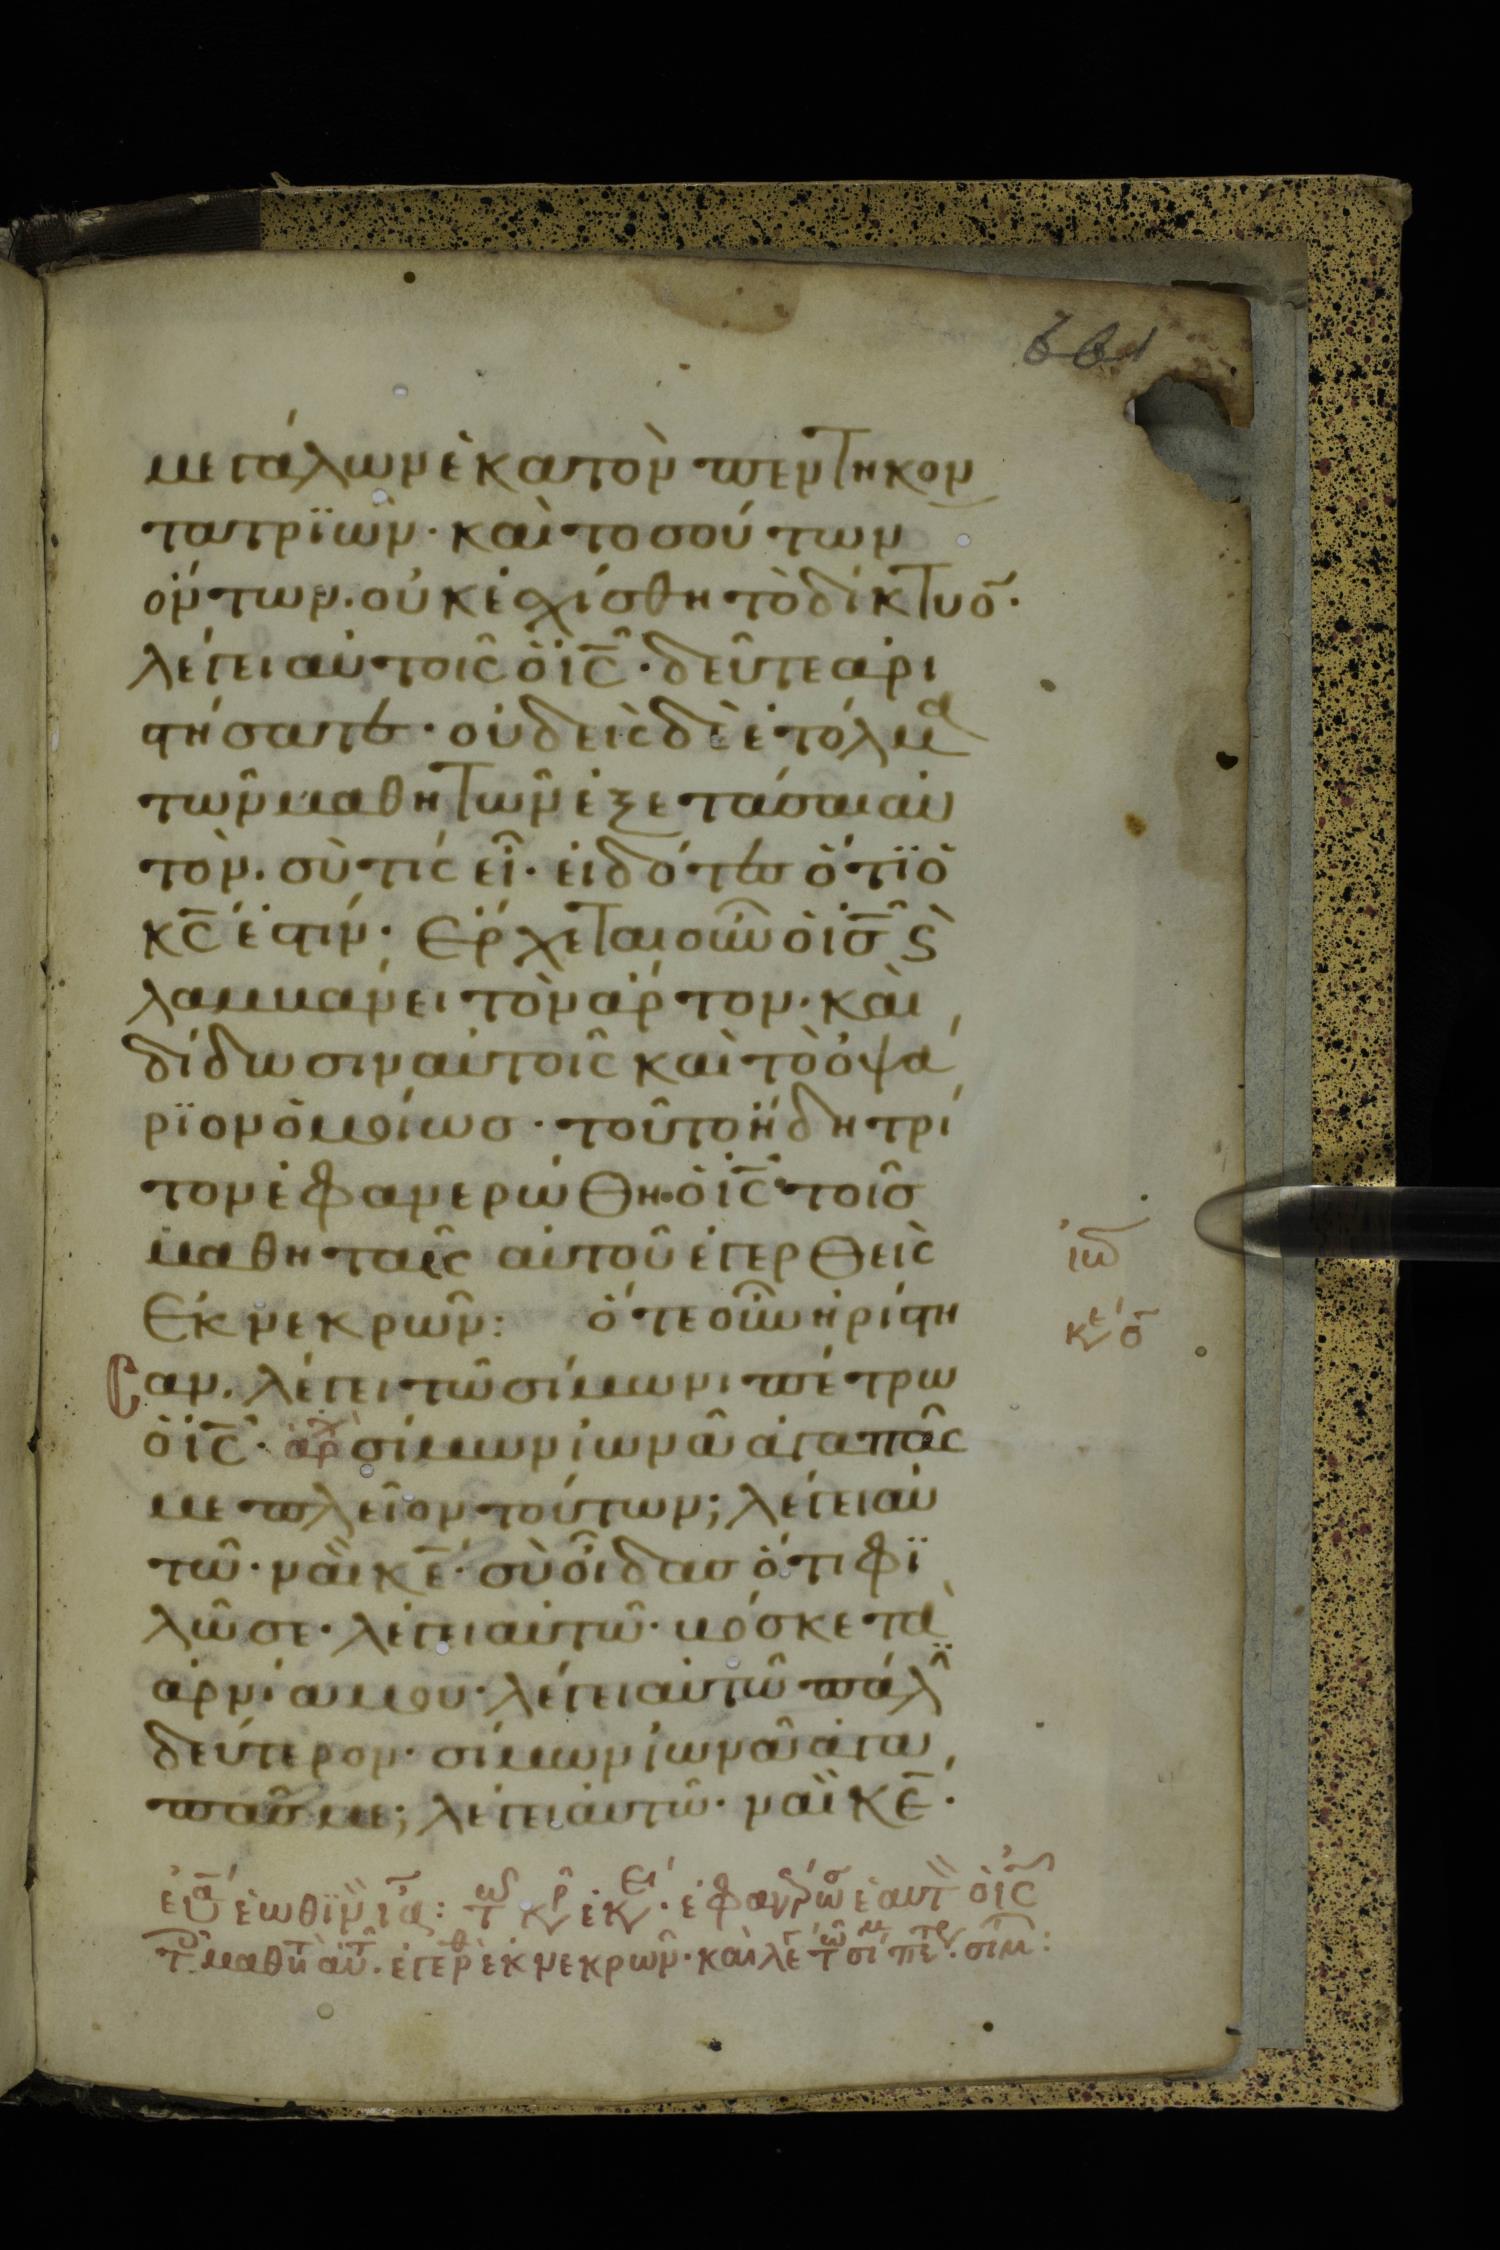 661
μεγάλων ἑκατὸν πεντηκον
τατριῶν· καὶ τοσούτων
ὄντων. οὐκ ἐσχίσθη τὸ δίκτυο̄·
λέγει αὐτοῖς ὁ ις̄· δεῦτε ἀρι
στήσατε· οὐδεὶς δὲ ἐτόλμα
τῶν μαθητῶν ἐξετάσαι αὐ
τὸν. σὺ τίς εἶ· εἰδότες ὅτι ὁ
κς̄ ἐστιν· Ἔρχεται οὖν ὁ ισ̄ ϗ
λαμβάνει τὸν ἄρτον· καὶ
δίδωσιν αὐτοῖς καὶ τὸ ὀψά
ριον ὁμοίωσ· τοῦτο ἤδη τρί
τον ἐφανερώθη ὁ ις̄ τοῖσ
μαθηταῖς αὐτοῦ ἐγερθεὶς
Ἐκ νεκρῶν: ὅτε οὖν ἠρίστη
σαν. λέγει τῶ σίμωνι πέτρω
ὁ ις̄· ἀρχ σίμων ἰωνᾶ ἀγαπᾶς
με πλεῖον τούτων; λέγει αὐ
τῶ· ναὶ κε̄· σὺ οἶδασ ὅτι φι
λῶ σε· λέγει αὐτῶ· βόσκε τὰ
ἀρνία μου· λέγει αὐτῶ πάλϊ
δεύτερον· σίμων ἰωνᾶ ἀγα
πᾶσ με; λέγει αὐτῶ· ναὶ κε̄·
ἐκ νεκρῶν· καὶ λέγ τῶ σίμ πέτρ· σίμ: